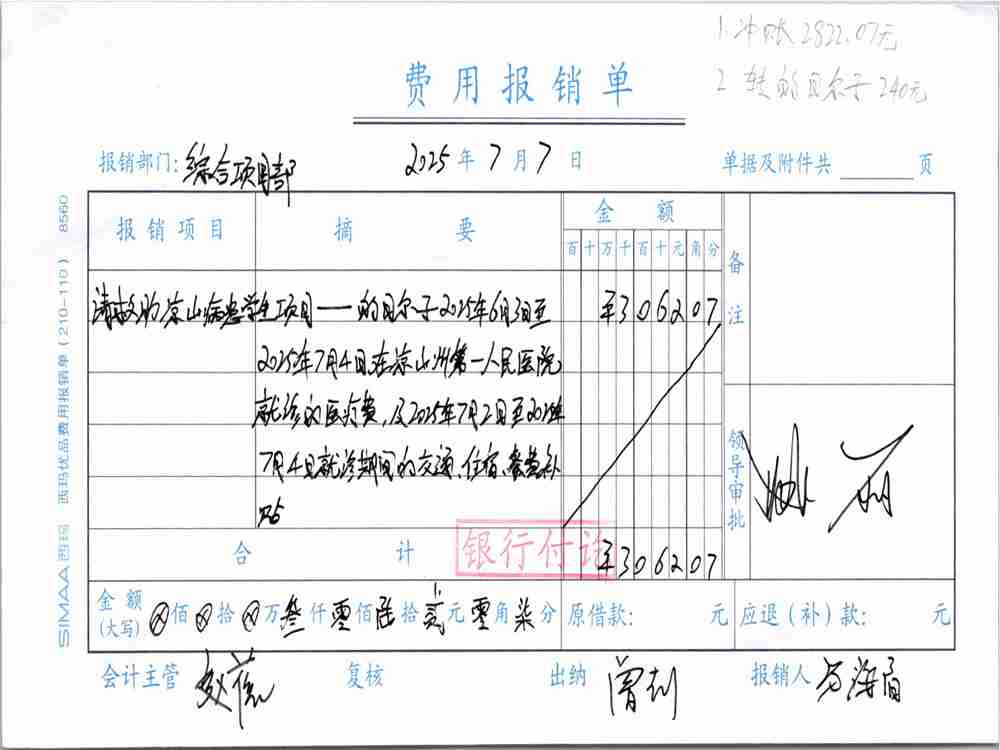 1. 冲账2822.07元
2 转的日尔子240元
费用报销单
报销部门: 综合项目部 2025年7月7日 单据及附件共 页
报销项目 摘要 金额 备注
百十万千百十元角分
请救助凉山病患学生项目——的日尔子2025年6月3日至 ¥306207
2025年7月4日在凉山州第一人民医院
就诊的医疗费,及2025年7月2日至2025年
7月4日就诊期间的交通、住宿、餐费补
贴
领导审批
合计 银行付讫 ¥306207
金额(大写) ⊗佰⊗拾⊗万叁仟零佰陆拾贰元零角柒分 原借款: 元 应退(补)款: 元
会计主管 复核 出纳 曾利 报销人 马海眉
SIMAA西玛 西玛优品费用报销单(210-110) 8560